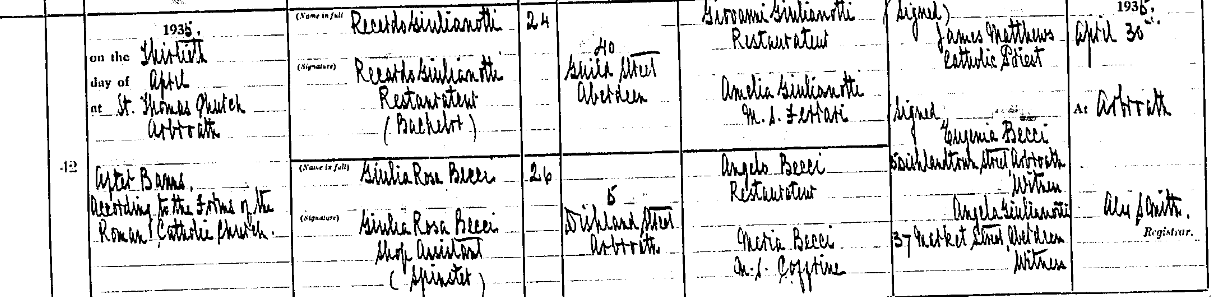 12
1935.
on the Thirtieth
day of April
at St. Thomas Church
Arbroath
After Banns.
According to the Forms of the
Roman Catholic Church.
(Name in full)
Recardo Giulianotti
(Signature)
Recardo Giulianotti
Restaurateur
(Bachelor)
(Name in full)
Giulia Rosa Becci
(Signature)
Giulia Rosa Becci
Shop Assistant
(Spinster)
24
26
40
Guild Street
Aberdeen
5
Dishland Street
Arbroath
Giovanni Giulianotti
Restaurateur
Amelia Giulianotti
M.S. Ferrari
Angelo Becci
Restaurateur
Maria Becci
M.S.
(Signed)
James Matthews
Catholic Priest
Signed
Eugenia Becci
5 Street Arbroath
Witness
Angela Giulianotti
37 Market Street Aberdeen
Witness
1935.
April 30th.
At Arbroath
Alex Smith.
Registrar.